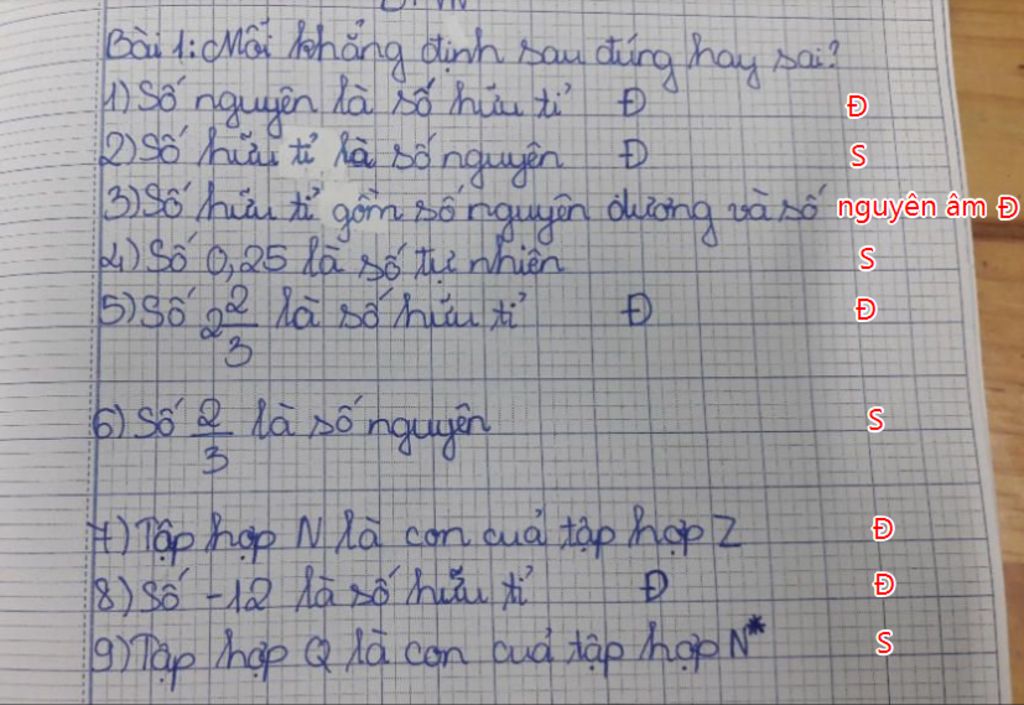 Bài 1: Mỗi khẳng định sau đúng hay sai?
1) Số nguyên là số hữu tỉ Đ Đ
2) Số hữu tỉ là số nguyên Đ S
3) Số hữu tỉ gồm số nguyên dương và số nguyên âm Đ
4) Số 0,25 là số tự nhiên S
5) Số 2 2/3 là số hữu tỉ Đ Đ
6) Số 2/3 là số nguyên S
7) Tập hợp N là con cuả tập hợp Z Đ
8) Số -12 là số hữu tỉ Đ Đ
9) Tập hợp Q là con cuả tập hợp N* S